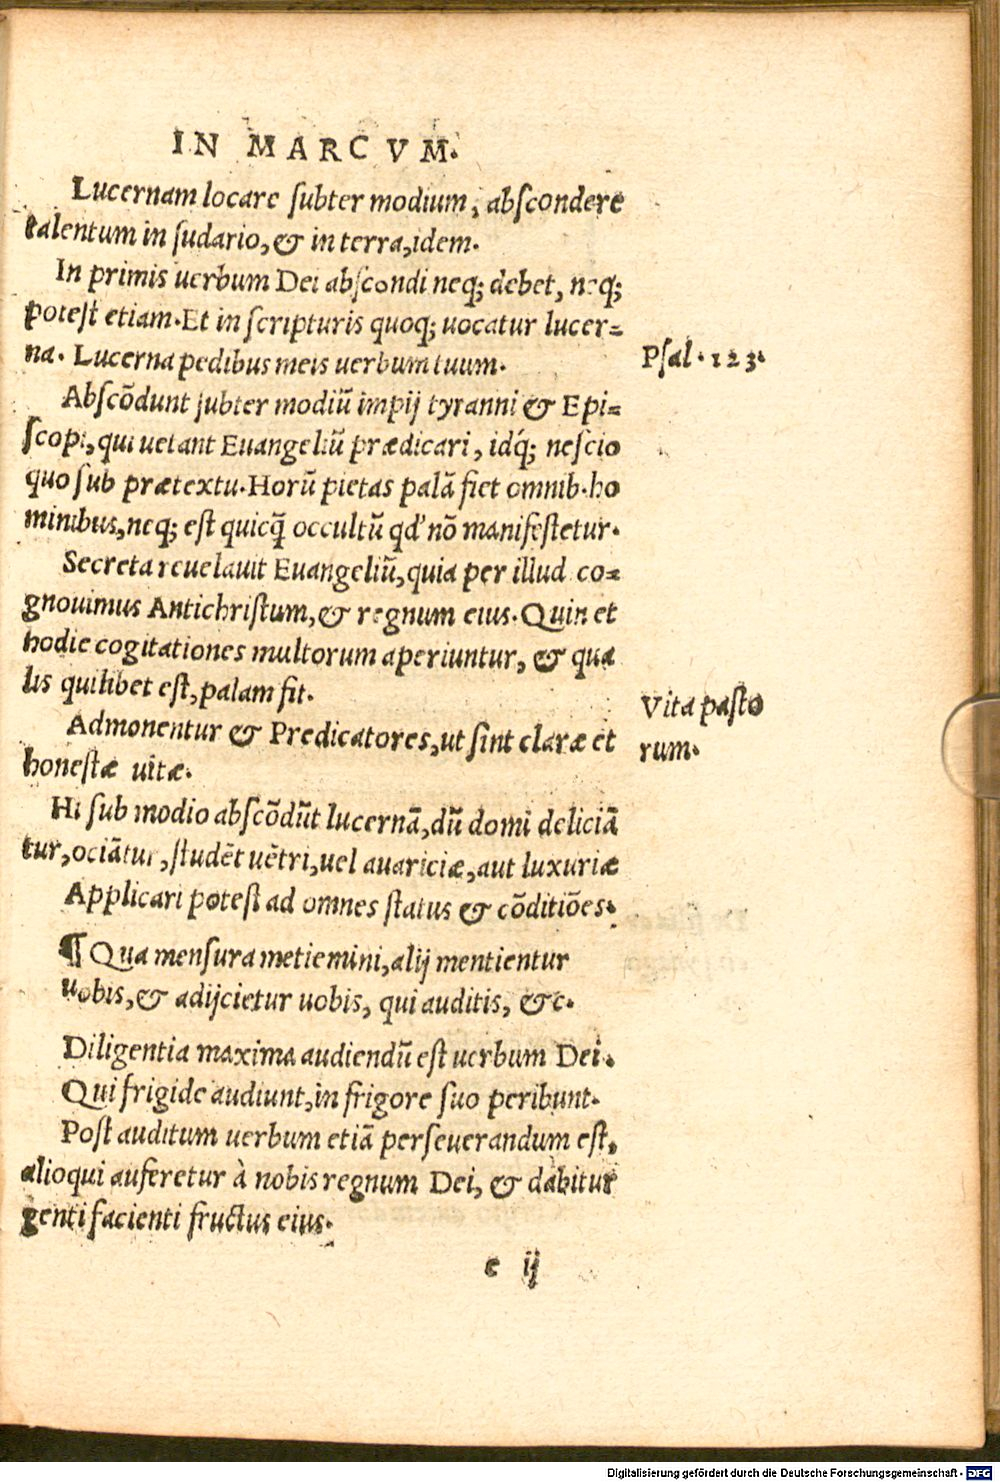 IN MARCVM.
Lucernam locare ſubter modium, abſcondere
talentum in ſudario, & in terra, idem.
In primis uerbum Dei abſcondi neq; debet, neq;
poteſt etiam. Et in ſcripturis quoq; uocatur lucer=
na. Lucerna pedibus meis uerbum tuum.
Psal. 123.
Abſcōdunt ſubter modiū impij tyranni & Epi=
ſcopi, qui uetant Euangeliū prædicari, idq́; neſcio
quo ſub prætextu. Horū pietas palā fiet omnib. ho
minibus, neq; eſt quicq̄ occultū qđ nō manifeſtetur.
Secreta reuelauit Euangeliū, quia per illud co=
gnouimus Antichriſtum, & regnum eius. Quin et
hodie cogitationes multorum aperiuntur, & qua
lis quilibet eſt, palam fit.
Vita paſto
rum.
Admonentur & Predicatores, ut ſint claræ et
honeſtæ uitæ.
Hi ſub modio abſcōdūt lucernā, dū domi deliciā
tur, ociātur, ſtudēt uētri, uel auariciæ, aut luxuriæ
Applicari poteſt ad omnes ſtatus & cōditiōes.
¶ Qua menſura metiemini, alij mentientur
uobis, & adijcietur uobis, qui auditis, &c.
Diligentia maxima audiendū eſt uerbum Dei.
Qui frigide audiunt, in frigore ſuo peribunt.
Poſt auditum uerbum etiā perſeuerandum eſt,
alioqui auferetur à nobis regnum Dei, & dabitur
genti facienti fructus eius.
e ij
Digitalisierung gefördert durch die Deutsche Forschungsgemeinschaft - DFG